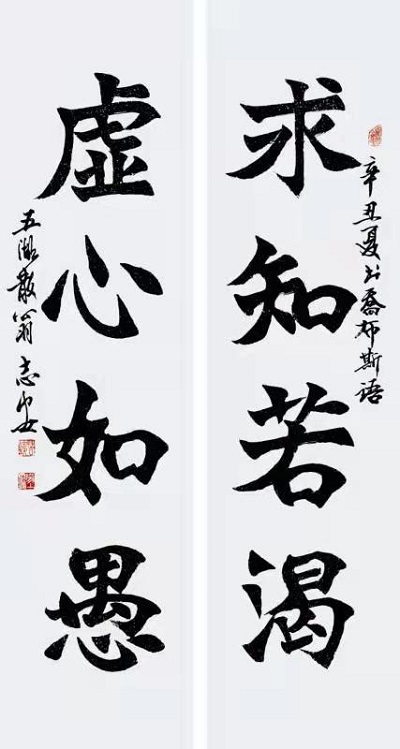 求知若渴
辛丑夏书乔布斯语
虚心如愚
五湖散翁志